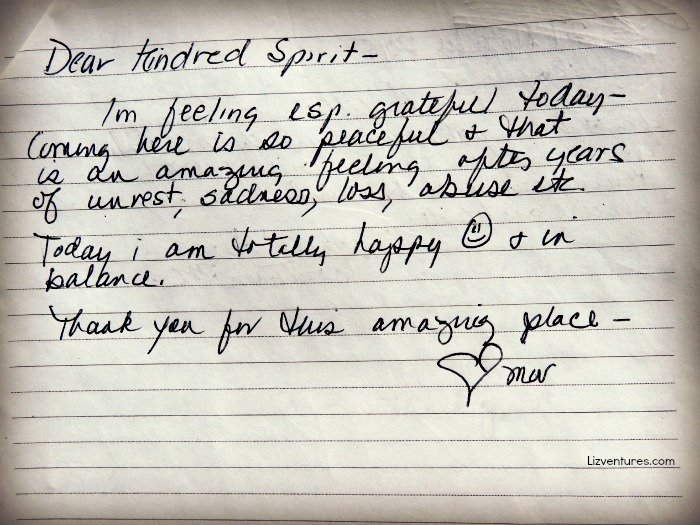 Dear Kindred Spirit –
Im feeling esp. grateful today –
Coming here is so peaceful & that
is an amazing feeling after years
of unrest, sadness, loss, abuse etc.
Today i am totally happy ☺ & in
balance.
Thank you for this amazing place –
♡ mer
Lizventures.com